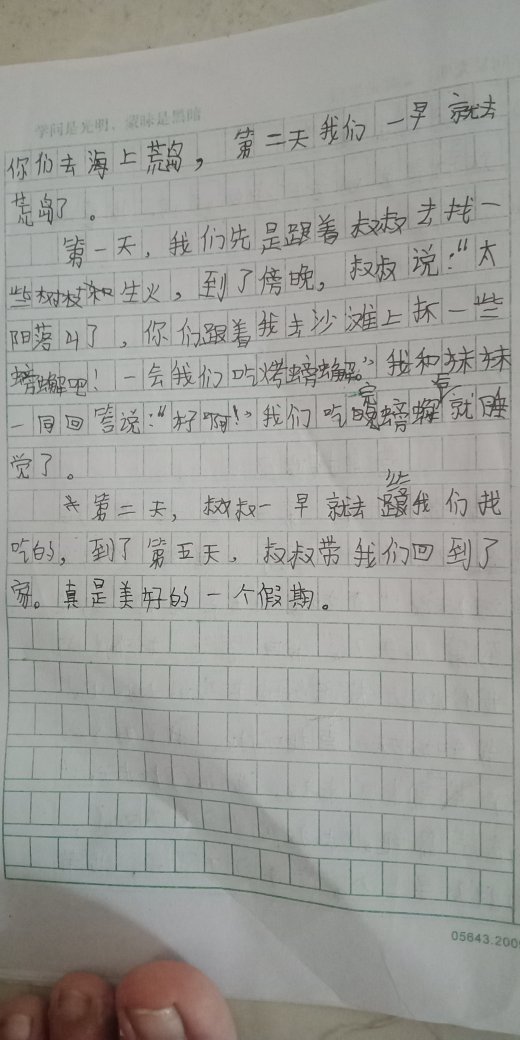 学问是光明，蒙昧是黑暗
你们去海上荒岛，第二天我们一早就去
荒岛了。
第一天，我们先是跟着叔叔去找一
些树枝和生火，到了傍晚，叔叔说：“太
阳落山了，你们跟着我去沙滩上抓一些
螃蟹吧！一会我们吃烤螃蟹。”我和妹妹
一同回答说：“好啊！”我们吃完螃蟹就睡
觉了。
第二天，叔叔一早就去给我们找
吃的，到了第五天，叔叔带我们回到了
家。真是美好的一个假期。
05843.200